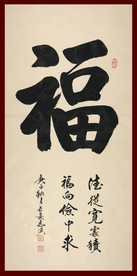 福
德從寬處積
福向儉中求